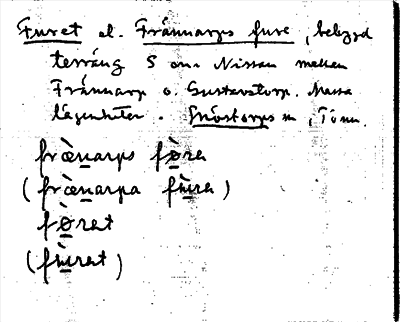 Furet el. Frännarps fure, belyzd
terräng S om Nissan mellan
Frännarp o. Gustavstorp. Massa
lägenheter. Gnöstorps sn, Tönn.
fræ̀narps fø̀ra
(fræ̀narpa fùra)
fø̀rat
(fùrat)